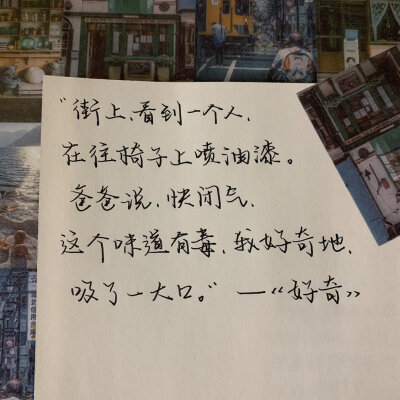 "街上，看到一个人，
在往椅子上喷油漆。
爸爸说，快闭气，
这个味道有毒，我好奇地，
吸了一大口。" —《好奇》